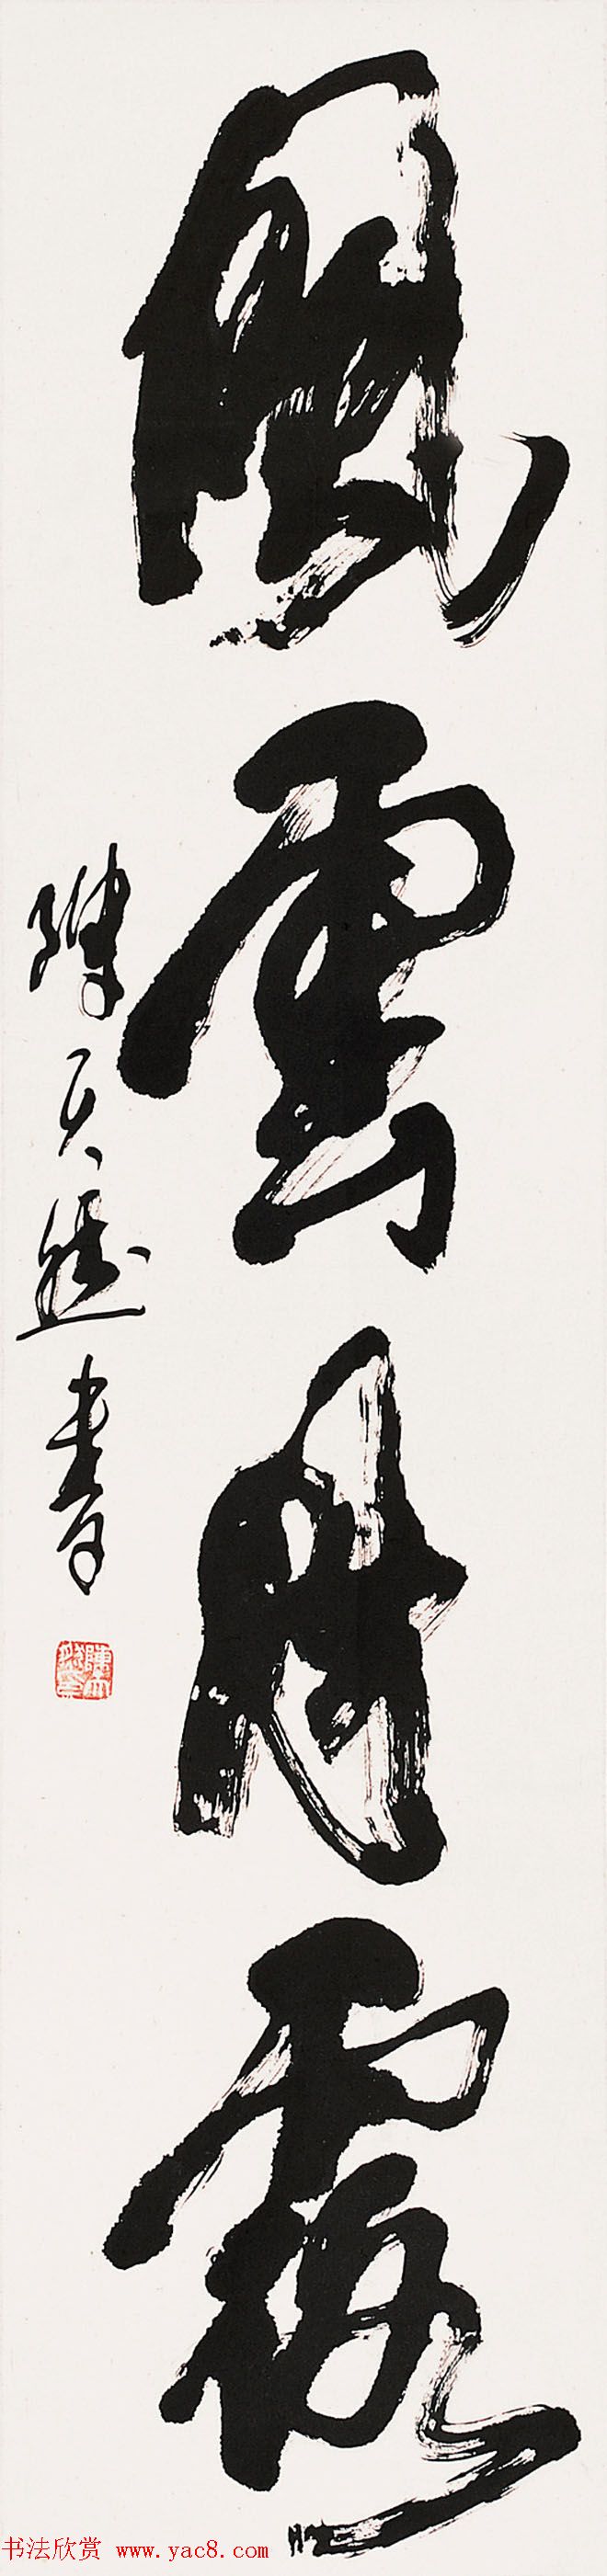 風雲月露
陳天然書
陳天
书法欣赏 www.yac8.com